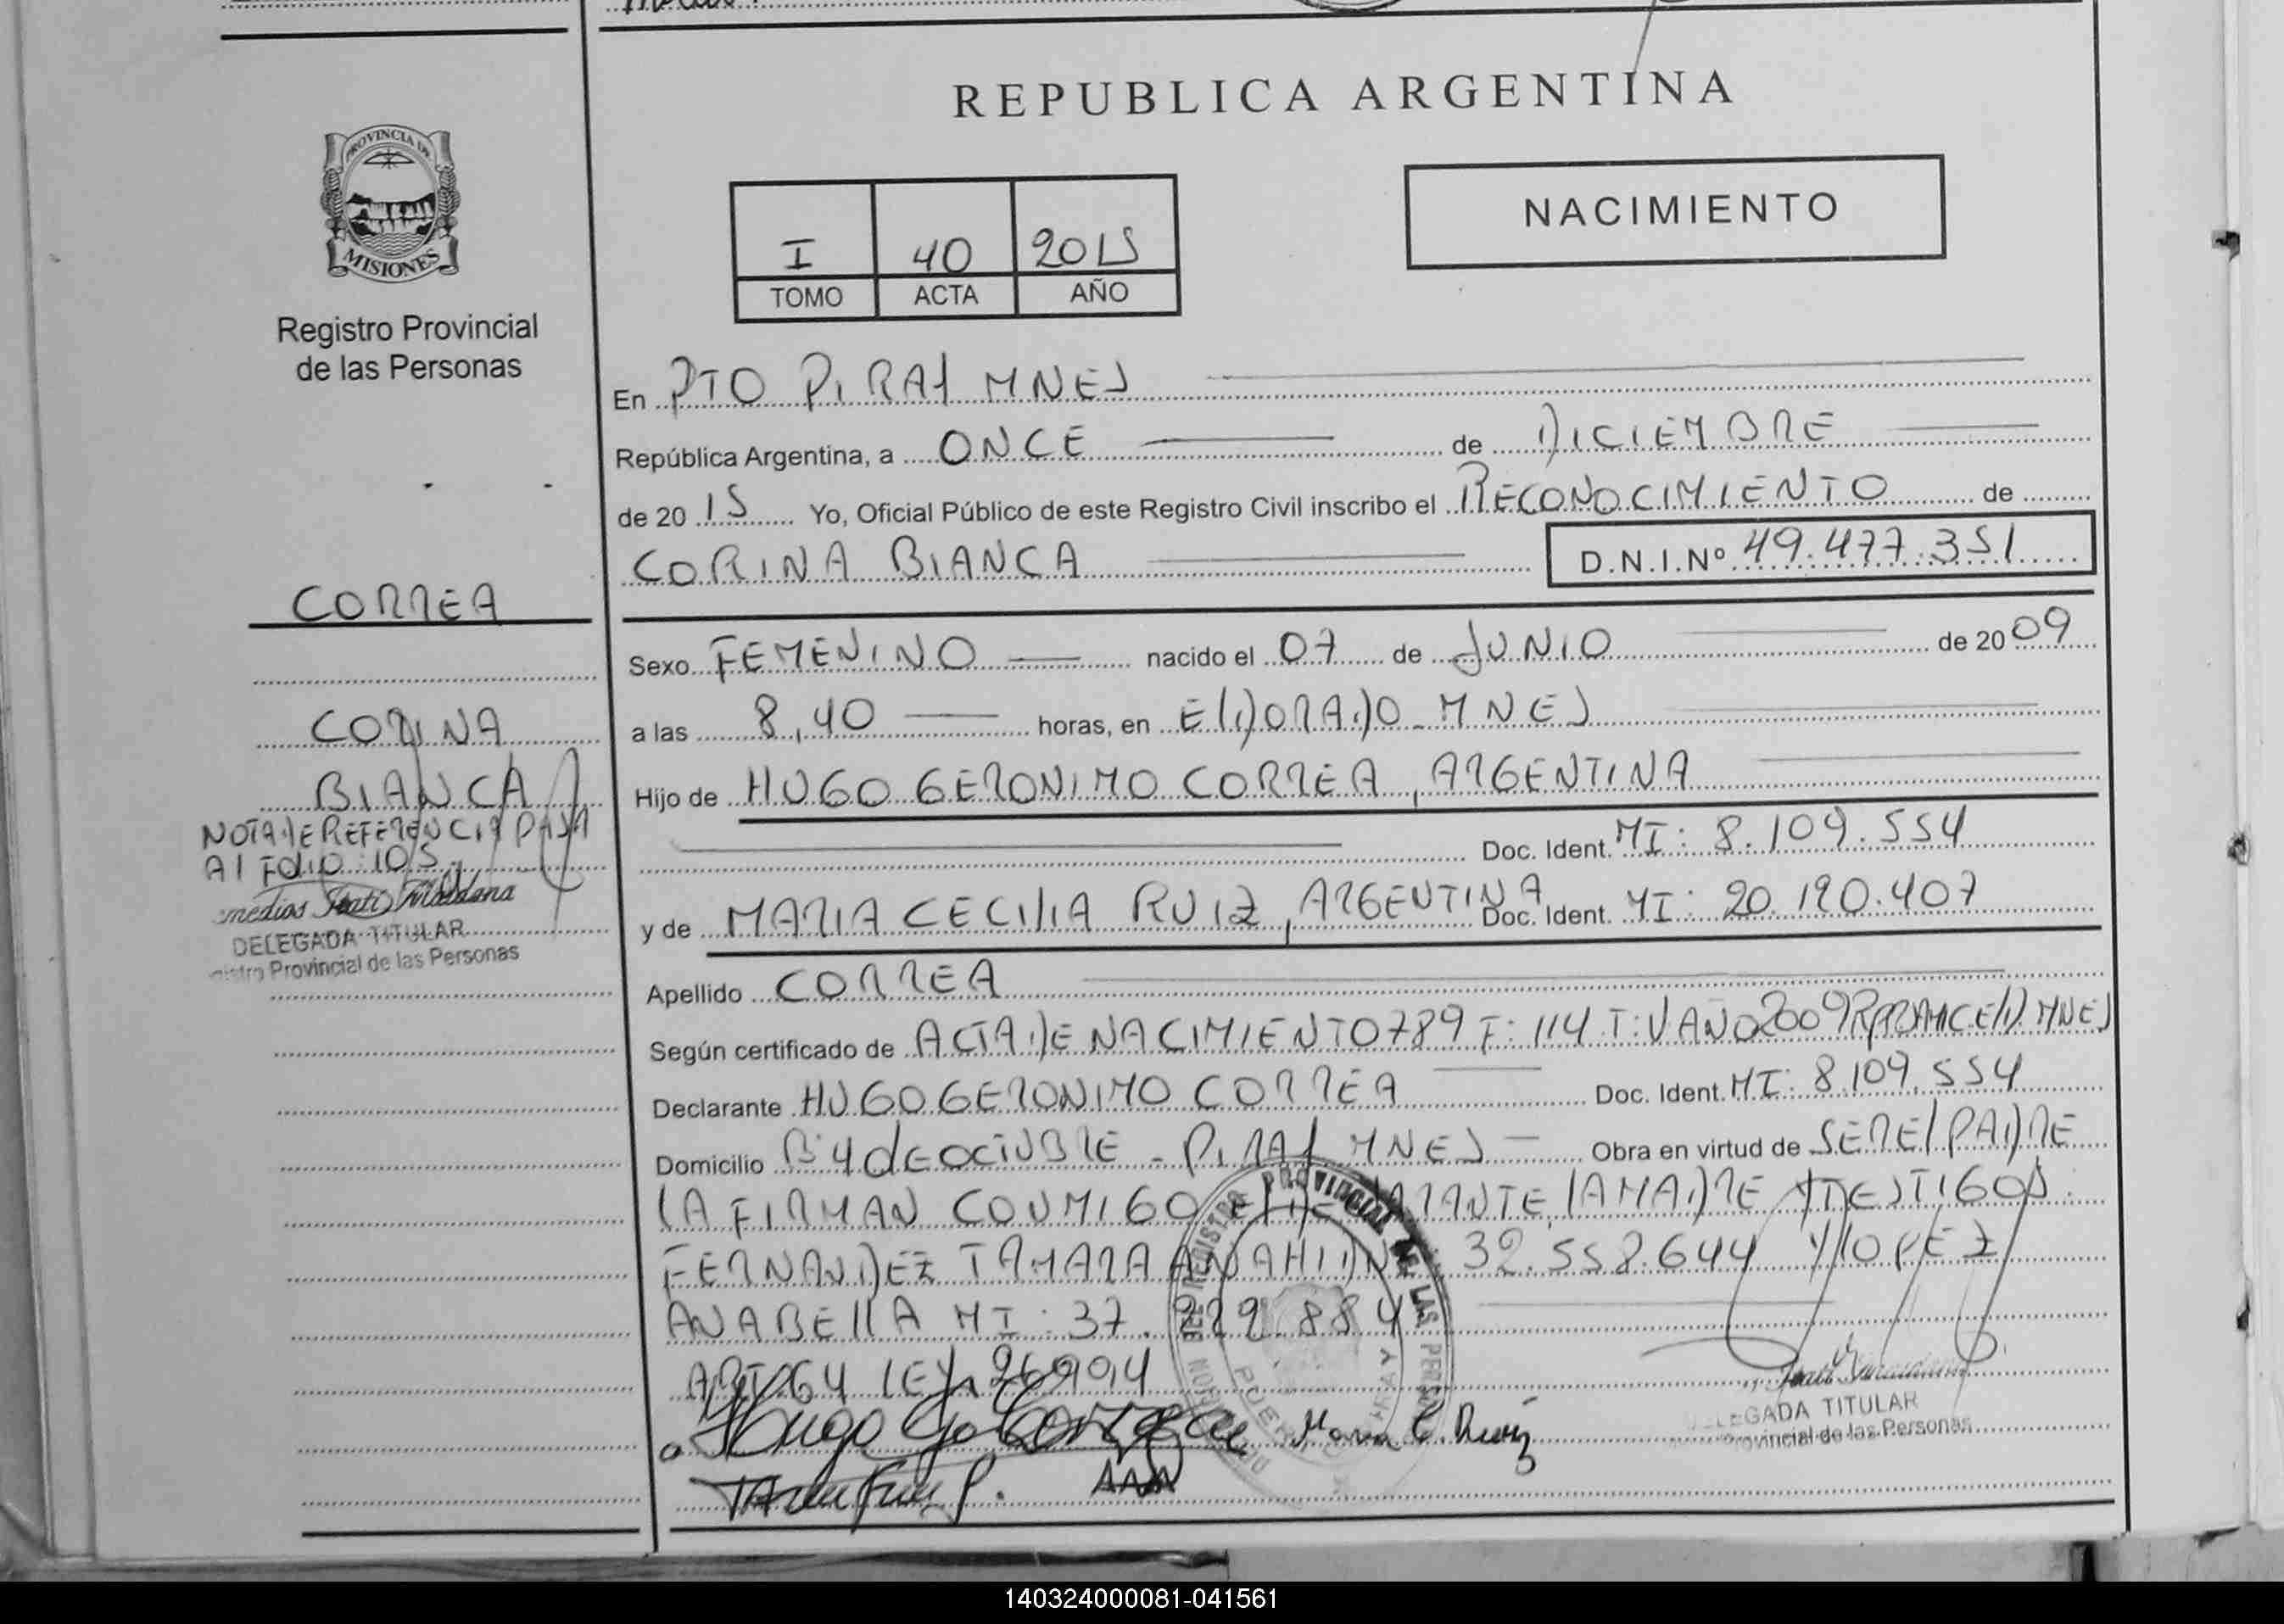 REPUBLICA ARGENTINA
PROVINCIA DE
MISIONES
Registro Provincial
de las Personas
NACIMIENTO
I 40 2015
TOMO ACTA AÑO
En PTO PIRAY MNES
República Argentina, a ONCE de DICIEMBRE
de 2015 Yo, Oficial Público de este Registro Civil inscribo el RECONOCIMIENTO de
CORINA BIANCA D.N.I.Nº 49.477.351
CORREA
CORINA
BIANCA
NOTA DE REFERENCIA PASA
Al FOLIO 105
DELEGADA TITULAR
Provincial de las Personas
Sexo FEMENINO nacido el 07 de JUNIO de 2009
a las 8,40 horas, en ElDORADO - MNES
Hijo de HUGO GERONIMO CORREA, ARGENTINA
Doc. Ident. MI: 8.109.554
y de MARIA CECIlIA RUIZ, ARGENTINA Doc. Ident. MI: 20.190.407
Apellido CORREA
Según certificado de ACTA DE NACIMIENTO 789 F: 114 T: V AÑO 2009 MNES
Declarante HUGO GERONIMO CORREA Doc. Ident. MI: 8.109.554
Domicilio Bº 4 dE OCTUBRE - PIRAY MNES Obra en virtud de SER El PADRE
LA FIRMAN CONMIGO El DEClARANTE, lA MADRE Y TESTIGOS
FERNANDEZ TAMARA ANAHI DNI: 32.558.644 Y lOPEZ
ANABEllA MI: 37. 884
ART 64 lEY 26994
Maria C. Ruiz
REGISTRO PROVINCIAL DE LAS PERSONAS
DELEGADA TITULAR
Provincial de las Personas
140324000081-041561